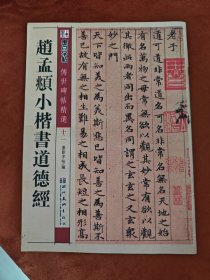 墨点字帖
傳世碑帖精選 十二
趙孟頫小楷書道德經
老子
道可道非常道名可名非常名無名天地之始
有名萬物之母常無欲以觀其妙常有欲以觀
其徼此兩者同出而異名同謂之玄玄之又玄衆
妙之門
天下皆知美之為美斯惡已皆知善之為善斯不善
已故有無之相生難易之相成長短之相形高